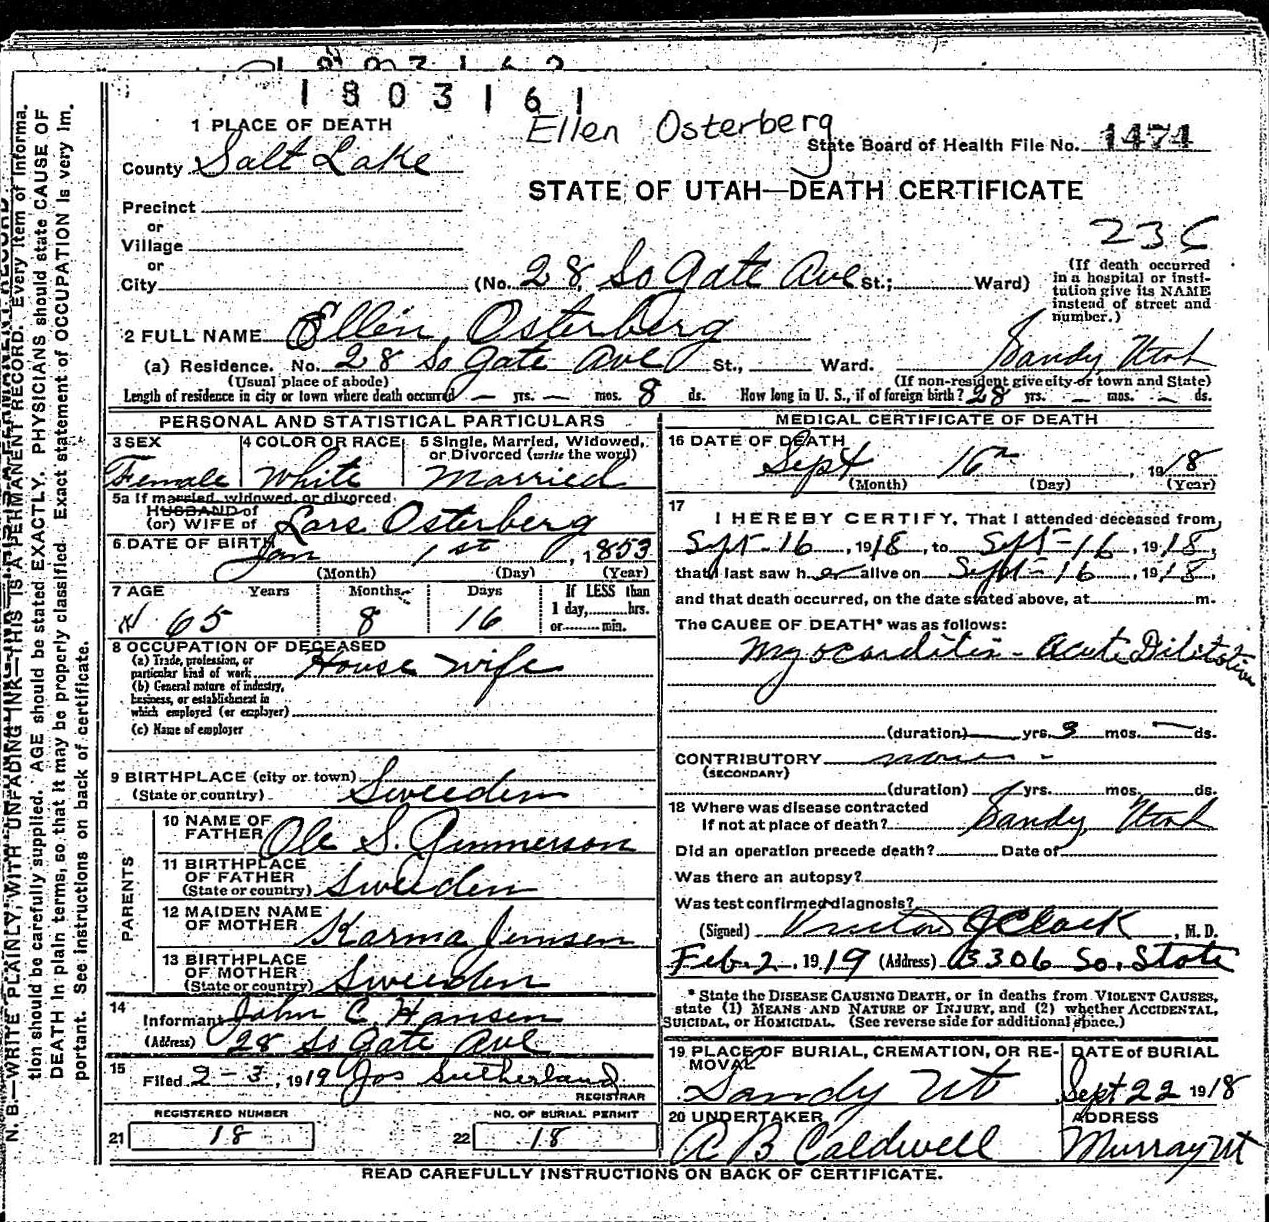 1803162
1803161
Ellen Osterberg
1 PLACE OF DEATH
State Board of Health File No. 1474
County Salt Lake
STATE OF UTAH—DEATH CERTIFICATE
Precinct
or
Village
23C
or
City (No. 28 So Gate Ave St.; Ward)
(If death occurred in a hospital or institution give its NAME instead of street and number.)
2 FULL NAME Ellen Osterberg
(a) Residence. No. 28 So Gate Ave St., Ward. Sandy, Utah
(Usual place of abode) (If non-resident give city or town and State)
Length of residence in city or town where death occurred — yrs. — mos. 8 ds. How long in U. S., if of foreign birth? 28 yrs. — mos. — ds.
PERSONAL AND STATISTICAL PARTICULARS
3 SEX
Female
4 COLOR OR RACE
White
5 Single, Married, Widowed, or Divorced (write the word)
Married
5a If married, widowed, or divorced
HUSBAND of
(or) WIFE of Lars Osterberg
6 DATE OF BIRTH Jan 1st, 1853
(Month) (Day) (Year)
7 AGE Years Months Days If LESS than
65 8 16 1 day, hrs.
or min.
8 OCCUPATION OF DECEASED
(a) Trade, profession, or particular kind of work House wife
(b) General nature of industry, business, or establishment in which employed (or employer)
(c) Name of employer
9 BIRTHPLACE (city or town)
(State or country) Sweeden
PARENTS
10 NAME OF FATHER Ole S. Gummerson
11 BIRTHPLACE OF FATHER
(State or country) Sweeden
12 MAIDEN NAME OF MOTHER Karma Jimsen
13 BIRTHPLACE OF MOTHER
(State or country) Sweeden
14
Informant John C Hansen
(Address) 28 So Gate Ave
15
Filed 2-3, 1919 Jos Sutherland
REGISTRAR
REGISTERED NUMBER
21 18
NO. OF BURIAL PERMIT
22 18
MEDICAL CERTIFICATE OF DEATH
16 DATE OF DEATH
Sept 16, 1918
(Month) (Day) (Year)
17
I HEREBY CERTIFY, That I attended deceased from
Sept-16, 1918, to Sept-16, 1918,
that I last saw her alive on Sept-16, 1918,
and that death occurred, on the date stated above, at m.
The CAUSE OF DEATH* was as follows:
Myocarditis - Acute Dilitation
(duration) yrs. 3 mos. — ds.
CONTRIBUTORY none -
(SECONDARY)
(duration) yrs. mos. ds.
18 Where was disease contracted
If not at place of death? Sandy, Utah
Did an operation precede death? Date of
Was there an autopsy?
Was test confirmed diagnosis?
(Signed) Victor J Clark, M. D.
Feb. 2, 1919 (Address) 3306 So. State
* State the DISEASE CAUSING DEATH, or in deaths from VIOLENT CAUSES,
state (1) MEANS AND NATURE OF INJURY, and (2) whether ACCIDENTAL,
SUICIDAL, or HOMICIDAL. (See reverse side for additional space.)
19 PLACE OF BURIAL, CREMATION, OR REMOVAL
Sandy Ut
DATE of BURIAL
Sept 22 1918
20 UNDERTAKER
A B Caldwell
ADDRESS
Murray Ut
READ CAREFULLY INSTRUCTIONS ON BACK OF CERTIFICATE.
N. B.—WRITE PLAINLY, WITH UNFADING INK—THIS IS A PERMANENT RECORD. Every item of Informa-
tion should be carefully supplied. AGE should be stated EXACTLY. PHYSICIANS should state CAUSE OF
DEATH in plain terms, so that it may be properly classified. Exact statement of OCCUPATION is very im-
portant. See instructions on back of certificate.